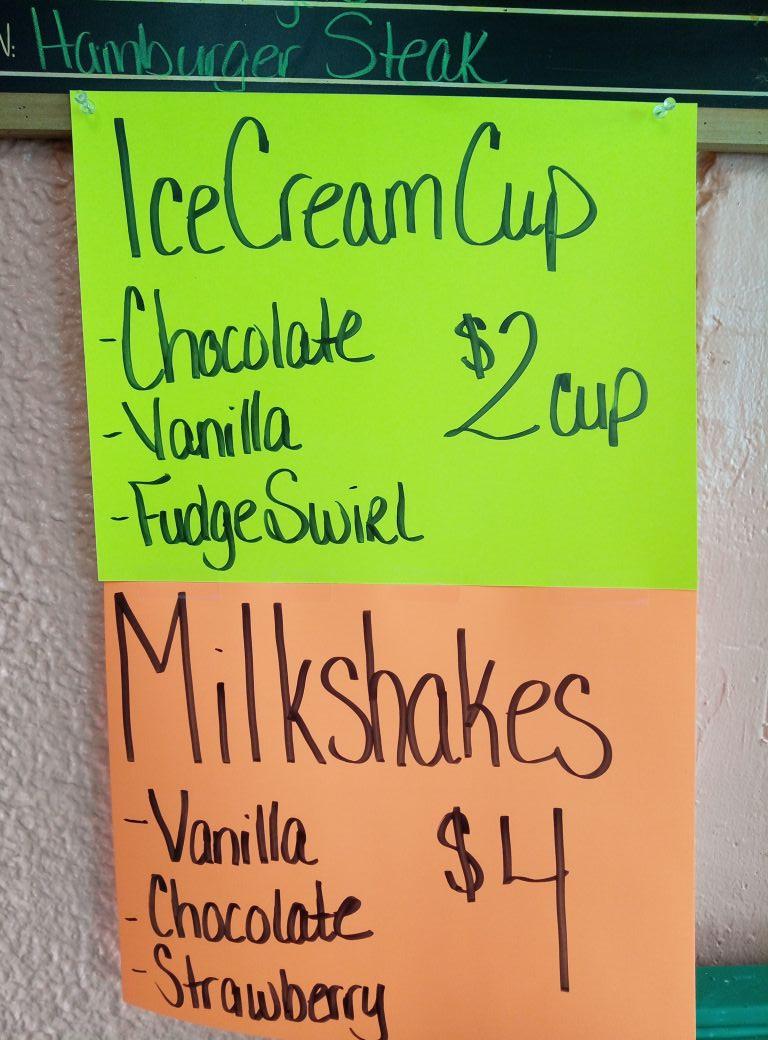 N: Hamburger Steak
Ice Cream Cup
-Chocolate
-Vanilla
-Fudge Swirl
$2 cup
Milkshakes
-Vanilla
-Chocolate
-Strawberry
$4